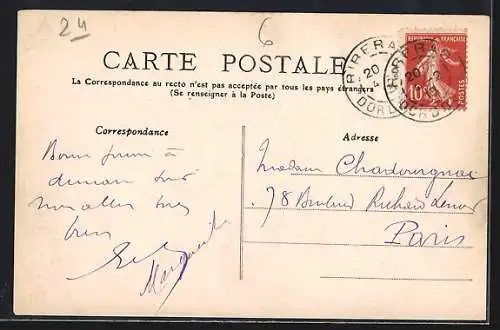 24
6
CARTE POSTALE
La Correspondance au recto n'est pas acceptée par tous les pays étrangers
(Se renseigner à la Poste)
RIBERAC
20
DORDOGNE
RIBERAC
20
REPUBLIQUE FRANÇAISE
10
POSTES
Correspondance
à
demain soir
nous allons très
bien
Marguerite
Adresse
Madame Chadourgnac
78 Boulevard Richard Lenoir
Paris